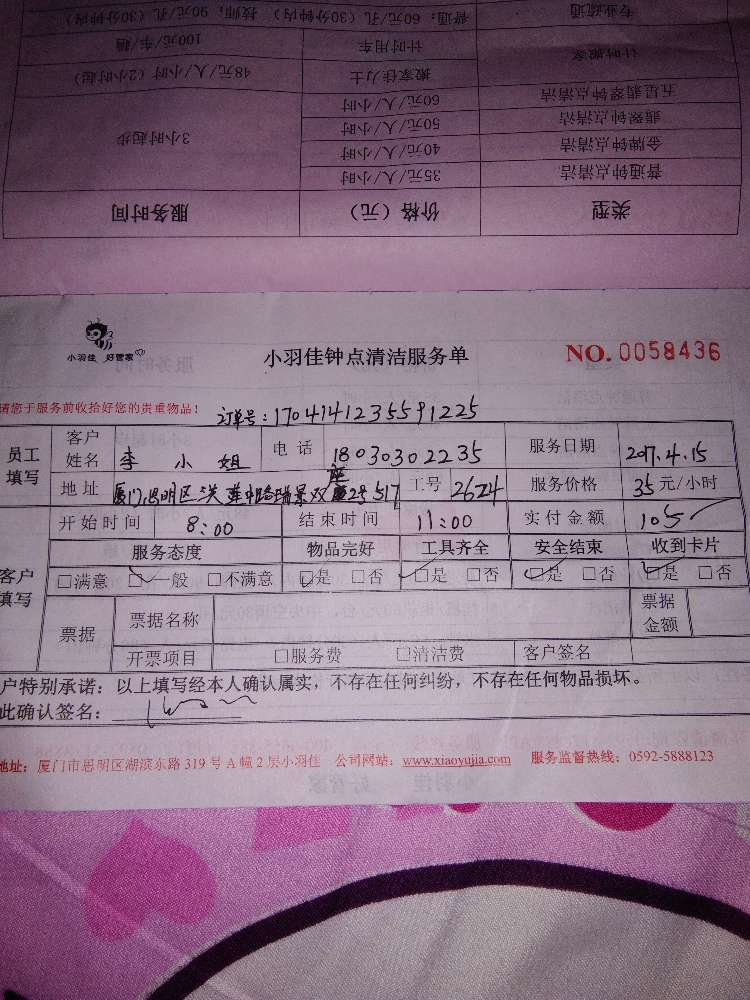 专业疏通 普通：60元/孔（30分钟内） 技师：90元/孔（30分钟内）
计时搬家 计时用车 100元/车/趟
搬家大力士 48元/人/小时（2小时起）
五星翡翠钟点清洁 60元/人/小时
翡翠钟点清洁 50元/人/小时
金牌钟点清洁 40元/人/小时 3小时起步
普通钟点清洁 35元/人/小时
类型 价格（元） 服务时间
小羽佳 好管家
小羽佳钟点清洁服务单
NO. 0058436
请您于服务前收拾好您的贵重物品！
订单号：17041412355591225
员工填写
客户姓名 李小姐 电话 18030302235 服务日期 2017.4.15
地址 厦门思明区 瑞景双座2号517 工号 2624 服务价格 35元/小时
开始时间 8:00 结束时间 11:00 实付金额 105
客户填写
服务态度 物品完好 工具齐全 安全结束 收到卡片
□满意 □一般 □不满意 □是 □否 □是 □否 □是 □否 □是 □否
票据 票据名称 票据金额
开票项目 □服务费 □清洁费 客户签名
户特别承诺：以上填写经本人确认属实，不存在任何纠纷，不存在任何物品损坏。
此确认签名：
地址：厦门市思明区湖滨东路319号A幢2层小羽佳 公司网站：www.xiaoyujia.com 服务监督热线：0592-5888123